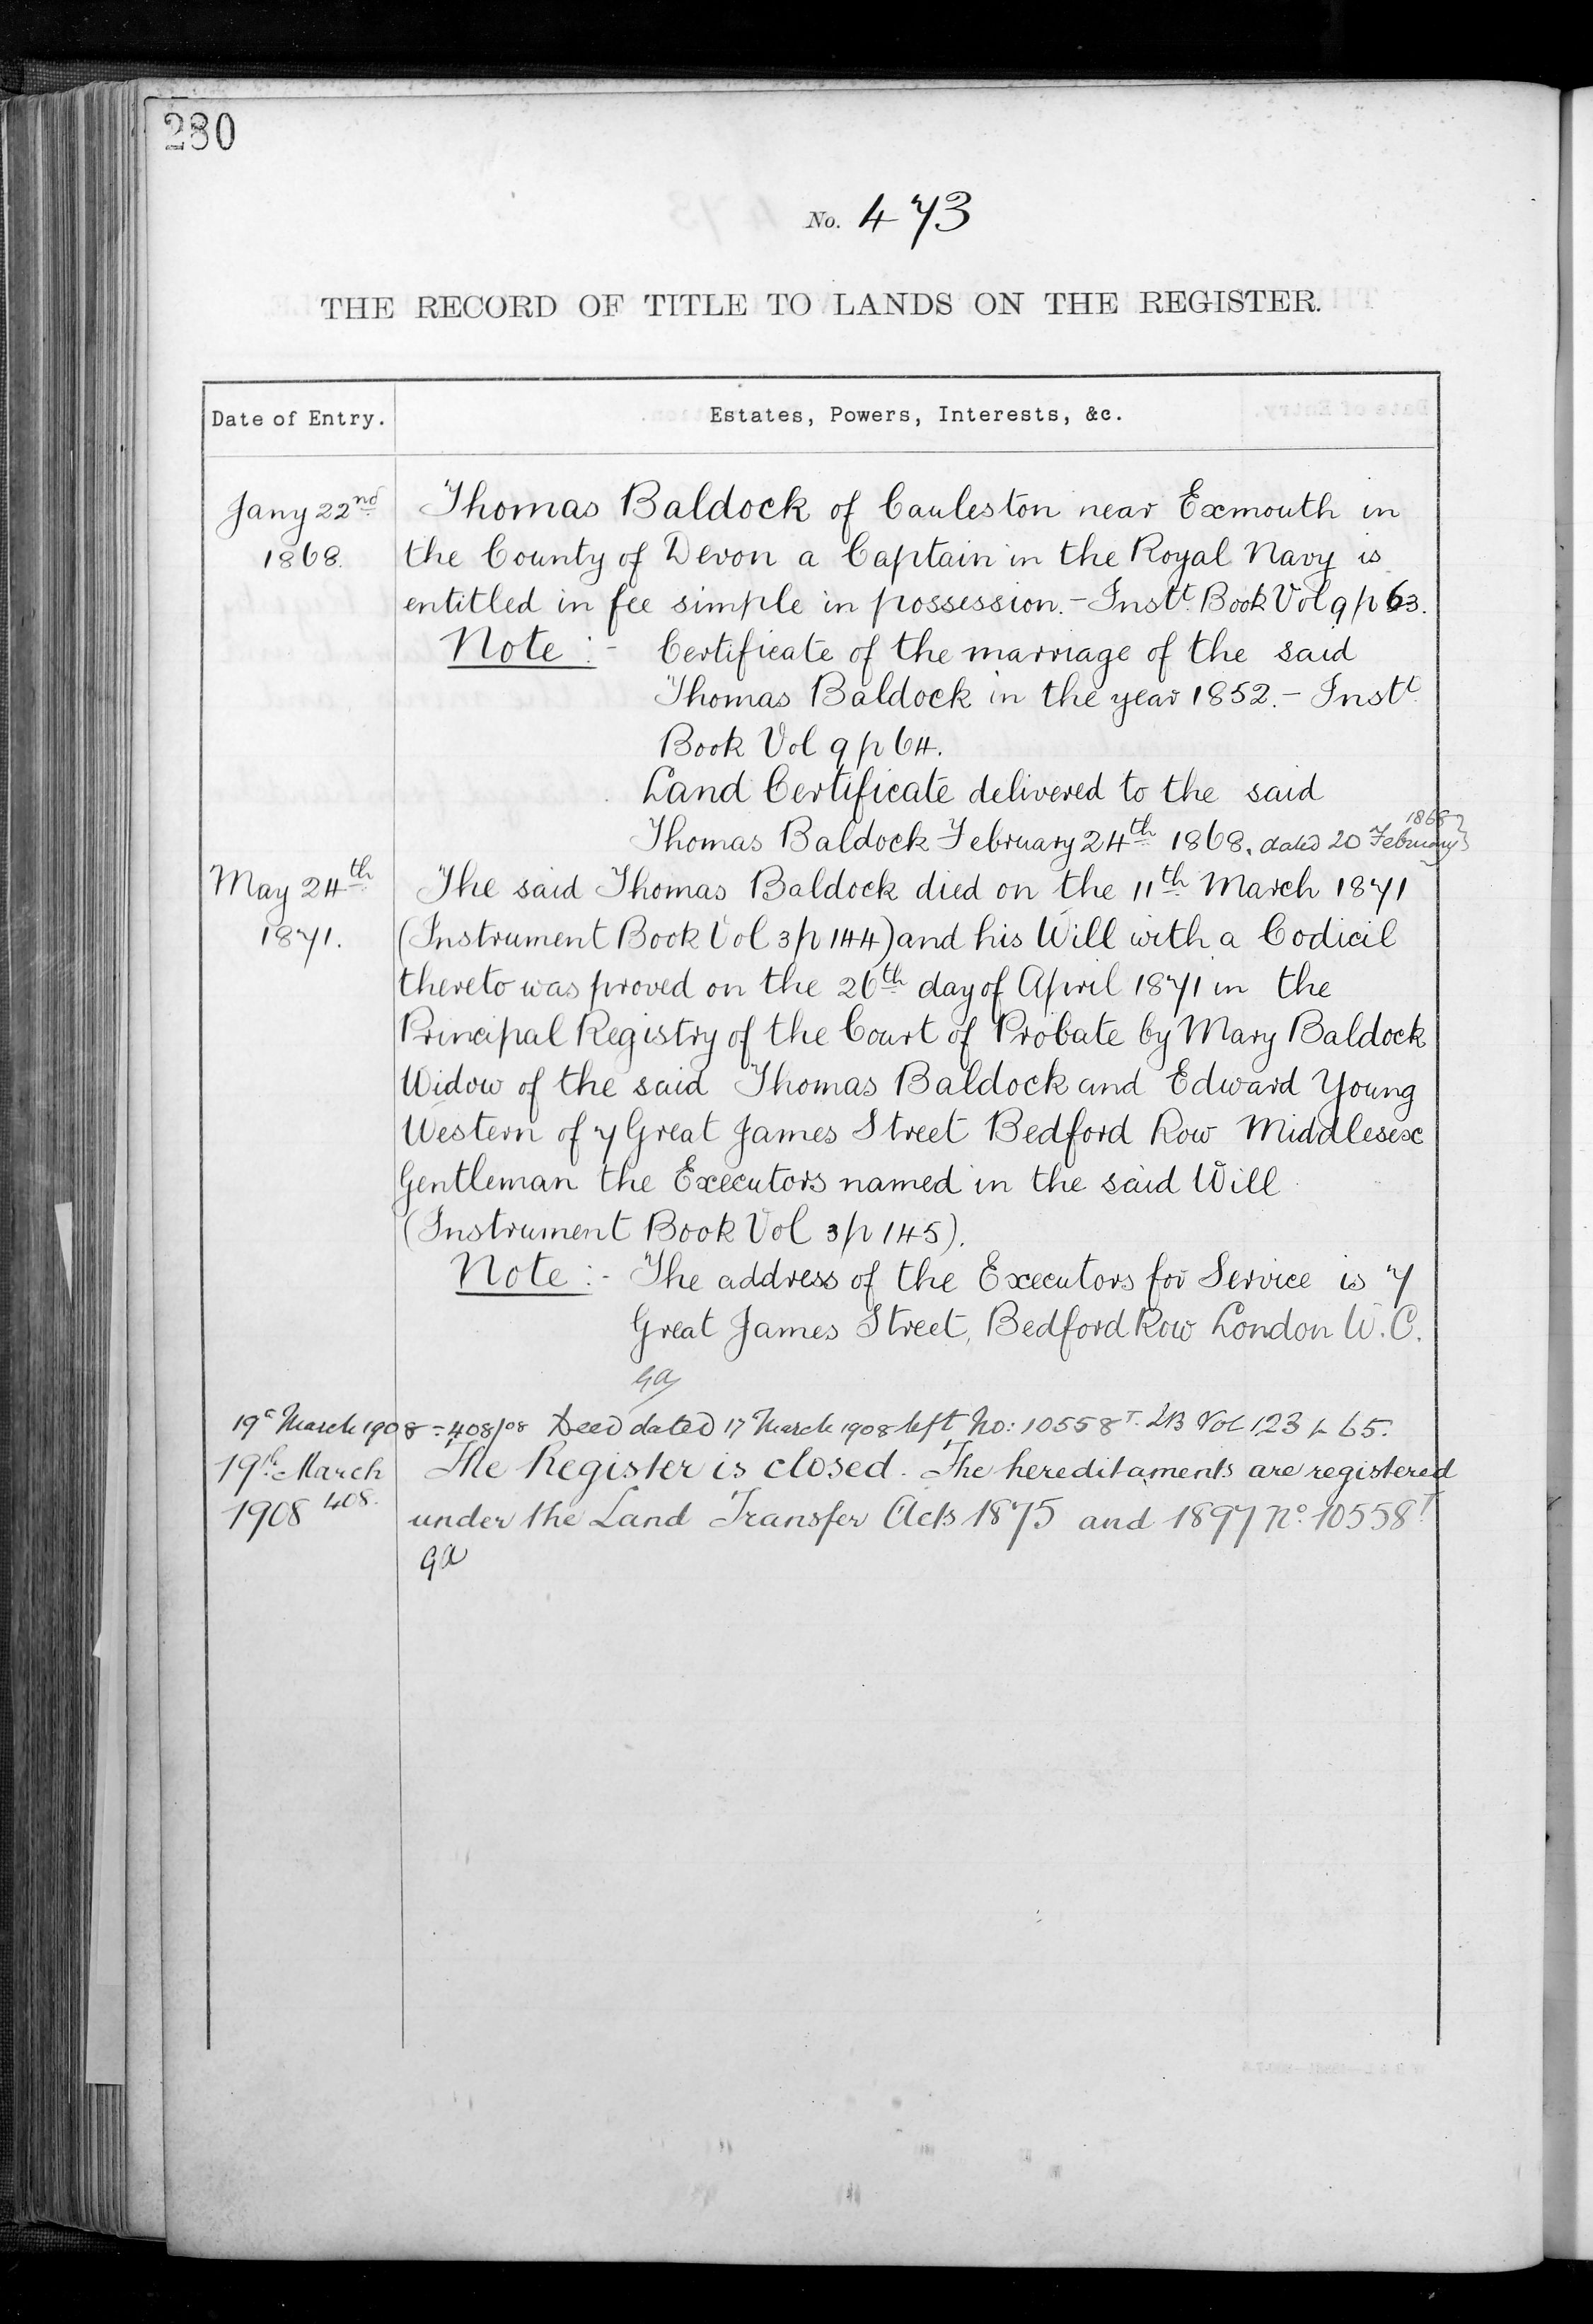 280
No. 473
THE RECORD OF TITLE TO LANDS ON THE REGISTER.
Date of Entry. Estates, Powers, Interests, &c.
Jany 22nd Thomas Baldock of Cauleston near Exmouth in
1868. the County of Devon a Captain in the Royal Navy is
entitled in fee simple in possession. - Instt. Book Vol 9 p 63.
Note :- Certificate of the marriage of the said
Thomas Baldock in the year 1852. - Instt.
Book Vol 9 p 64.
Land Certificate delivered to the said
1868
Thomas Baldock February 24th 1868. dated 20 February
May 24th The said Thomas Baldock died on the 11th March 1871
1871. (Instrument Book Vol 3 p 144) and his Will with a Codicil
thereto was proved on the 26th day of April 1871 in the
Principal Registry of the Court of Probate by Mary Baldock
Widow of the said Thomas Baldock and Edward Young
Western of 7 Great James Street Bedford Row Middlesex
Gentleman the Executors named in the said Will
(Instrument Book Vol 3 p 145).
Note :- The address of the Executors for Service is 7
Great James Street, Bedford Row London W.C.
GA
19 March 1908 = 408/08 Deed dated 17 March 1908 left No: 10558T. Vol 123 p 65.
19th March The Register is closed. The hereditaments are registered
1908 408. under the Land Transfer Acts 1875 and 1897 No. 10558T
GA